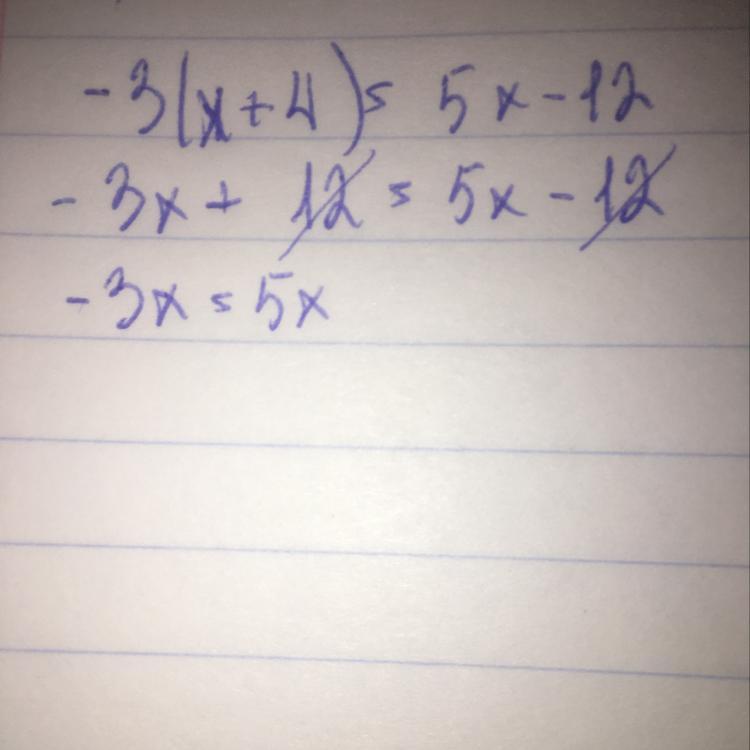 -3(x+4)= 5x-12
-3x + 12 = 5x - 12
-3x = 5x